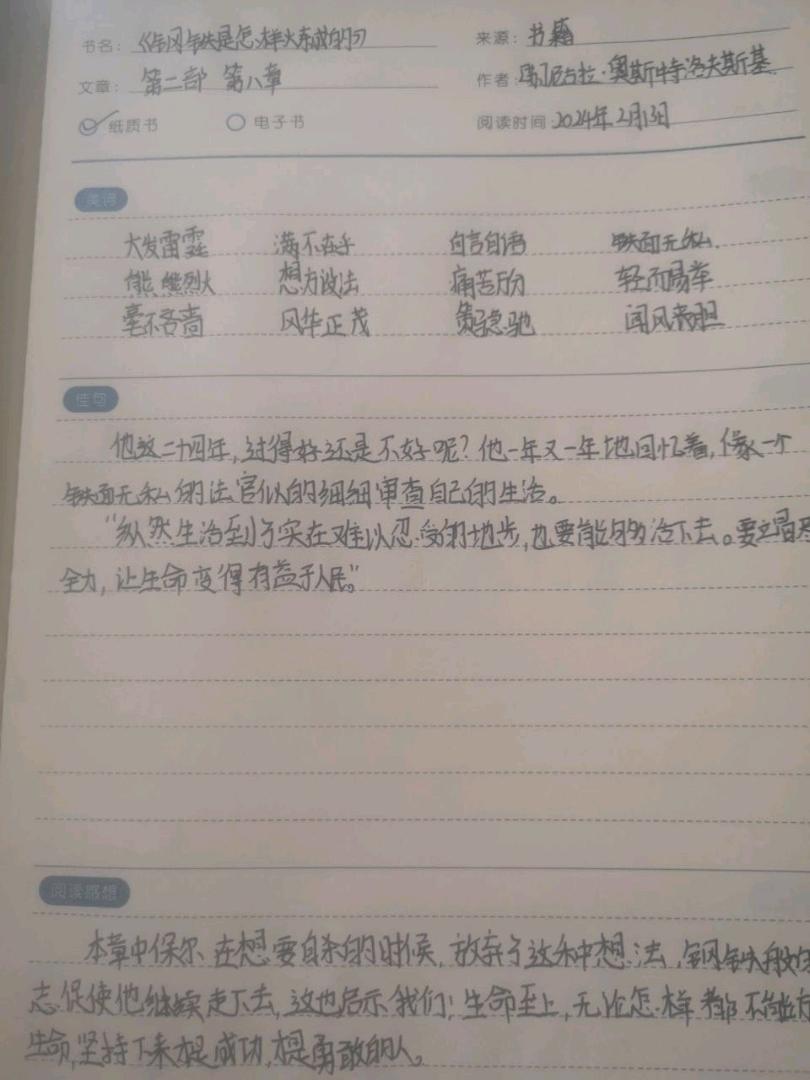 书名：《钢铁是怎样炼成的》 来源：书籍
文章：第二部 第八章 作者：尼古拉·奥斯特洛夫斯基
纸质书 电子书 阅读时间：2024年2月13日
美词
大发雷霆 满不在乎 自言自语 铁面无私
熊熊烈火 想方设法 痛苦万分 轻而易举
毫不吝啬 风华正茂 急驰 闻风丧胆
佳句
他这二十四年，过得好还是不好呢？他一年又一年地回忆着，像一个
铁面无私的法官似的细细审查自己的生活。
“纵然生活到了实在难以忍受的地步，也要能够活下去。要竭尽
全力，让生命变得有益于人民。”
阅读感想
本章中保尔在想要自杀的时候，放弃了这种想法，钢铁般的
志促使他继续走下去，这也启示我们：生命至上，无论怎样都不能放
生命，坚持下来都是成功，都是勇敢的人。